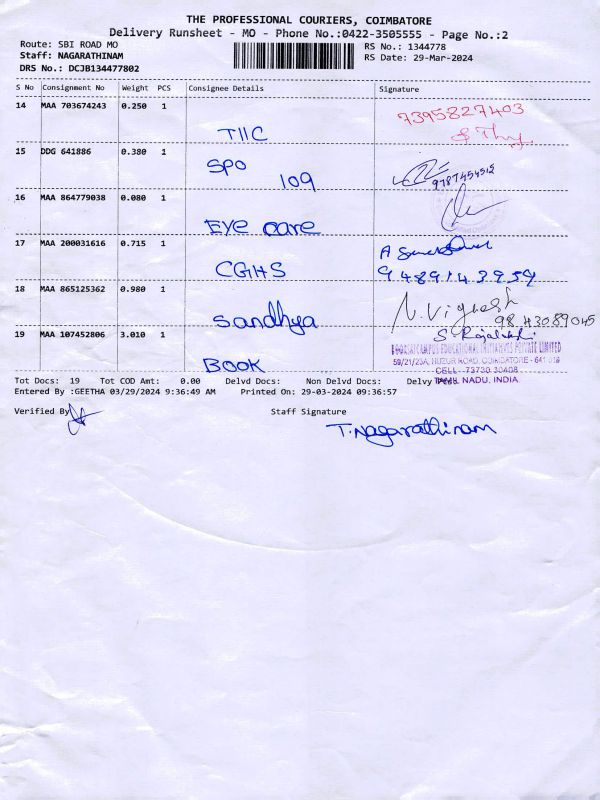 THE PROFESSIONAL COURIERS, COIMBATORE
Delivery Runsheet - MO - Phone No.:0422-3505555 - Page No.:2
Route: SBI ROAD MO
RS No.: 1344778
Staff: NAGARATHINAM
RS Date: 29-Mar-2024
DRS No.: DCJB134477802
S No Consignment No Weight PCS Consignee Details Signature
14 MAA 703674243 0.250 1
7395827403
TIIC
15 DDG 641886 0.380 1
SPO
109
9787454512
16 MAA 864779038 0.080 1
Eye care
17 MAA 200031616 0.715 1
CGHS
9489143959
18 MAA 865125362 0.980 1
Sandhya
N. Vignesh
9843089045
19 MAA 107452806 3.010 1
S. Rajalakshi
EDUCATIONAL INITIATIVES PRIVATE LIMITED
59/21/23A, HUZUR ROAD, COIMBATORE - 641 018
CELL: 73730 30408
BOOK
TAMIL NADU, INDIA.
Tot Docs: 19 Tot COD Amt: 0.00 Delvd Docs: Non Delvd Docs: Delvy
Entered By :GEETHA 03/29/2024 9:36:49 AM Printed On: 29-03-2024 09:36:57
Verified By
Staff Signature
T. Nagarathinam